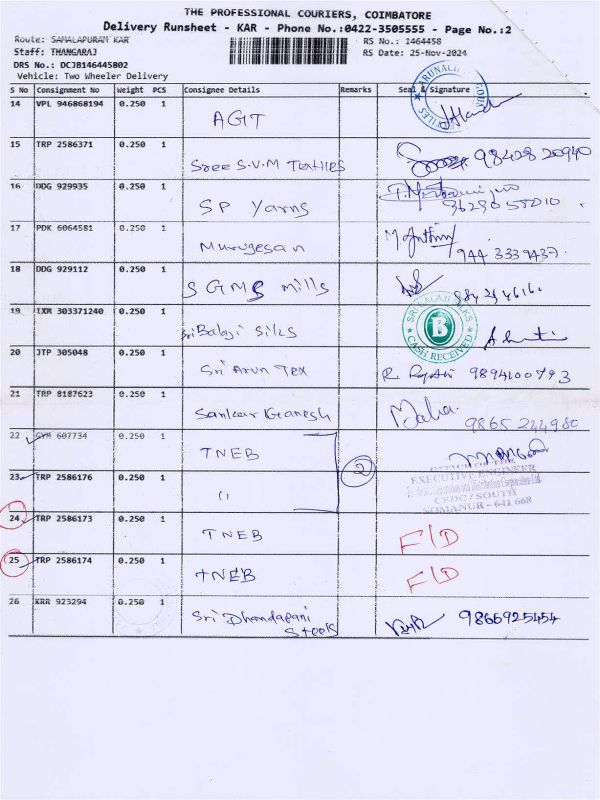 THE PROFESSIONAL COURIERS, COIMBATORE
Delivery Runsheet - KAR - Phone No.:0422-3505555 - Page No.:2
Route: SAMALAPURAM KAR
RS No.: 1464458
Staff: THANGARAJ
RS Date: 25-Nov-2024
DRS No.: DCJB146445802
Vehicle: Two Wheeler Delivery
S No Consignment No Weight PCS Consignee Details Remarks Seal & Signature
14 VPL 946868194 0.250 1 AGT
15 TRP 2586371 0.250 1 Sree S.V.M Textiles 98428 20940
16 DDG 929935 0.250 1 SP Yarns
17 PDK 6064581 0.250 1 Murugesan M Anthony 944 3339437
18 DDG 929112 0.250 1 SGMS Mills
19 IXM 303371240 0.250 1 Sri Balaji Silks
SRI BALAJI SILKS
B
CASH RECEIVED
20 JTP 305048 0.250 1 Sri Arun Tex R 9894100793
21 TRP 8187623 0.250 1 Sankar Ganesh Maha 9865 224980
22 GYM 607734 0.250 1 TNEB
2
23 TRP 2586176 0.250 1 "
OFFICE OF THE
EXECUTIVE ENGINEER
CPDC/SOUTH
SOMANUR - 641 668
24 TRP 2586173 0.250 1 TNEB F/D
25 TRP 2586174 0.250 1 TNEB F/D
26 KRR 923294 0.250 1 Sri Dhandapani Steels 9866925454